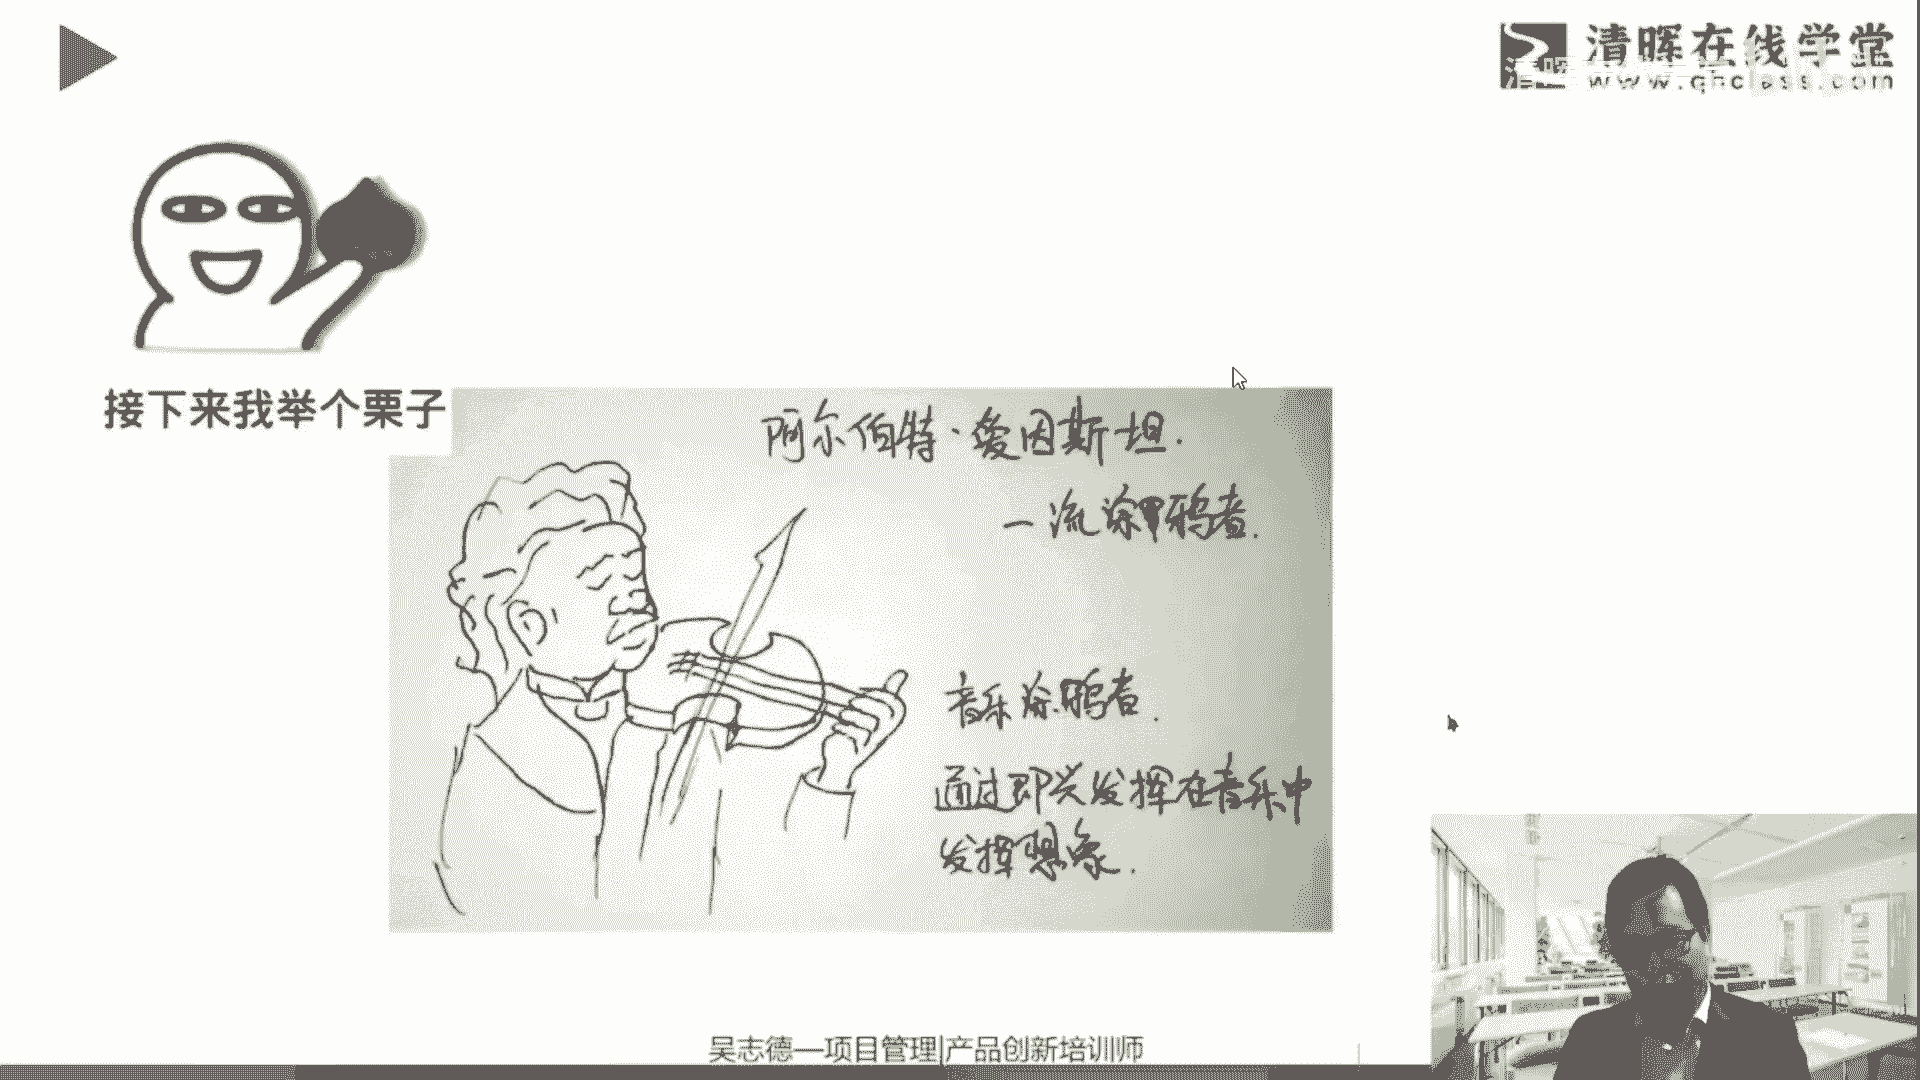 清晖在线学堂
www.qhclass.com
接下来我举个栗子
阿尔伯特·爱因斯坦.
一流涂鸦者.
音乐涂鸦者.
通过即兴发挥在音乐中
发挥想象.
吴志德—项目管理|产品创新培训师